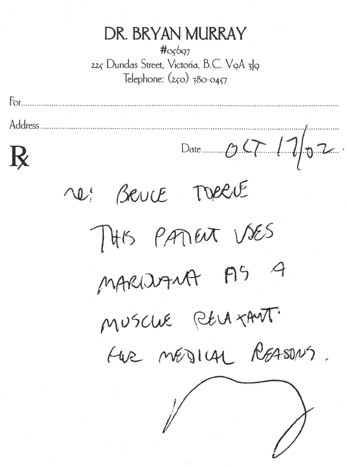 DR. BRYAN MURRAY
#05697
225 Dundas Street, Victoria, B.C. V9A 3J9
Telephone: (250) 380-0457
For
Address
℞ Date OCT 17/02
re: BRUCE TORRIE
THIS PATIENT USES
MARIJUANA AS A
MUSCLE RELAXANT.
FOR MEDICAL REASONS.